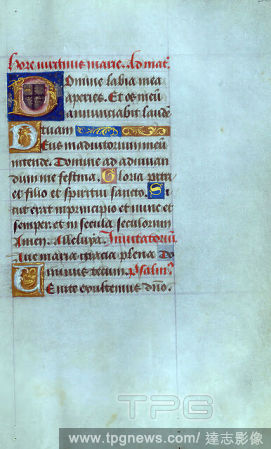 Hore virginis marie. Ad mat̄.
Domine labia mea
aperies. Et os meū
annunciabit laudē
tuam
Deus in adiutorium meū
intende. Domine ad adiuuan
dum me festina. Gloria patri
et filio et spiritui sancto. Si
cut erat in principio et nunc et
semper. et in secula seculorum
Amen. Alleluya. Inuitatoriū.
Aue maria gracia plena Do
minus tecum. Psalm⁹.
Uenite exultemus dn̄o.
TPG
www.tpgnews.com / 達志影像